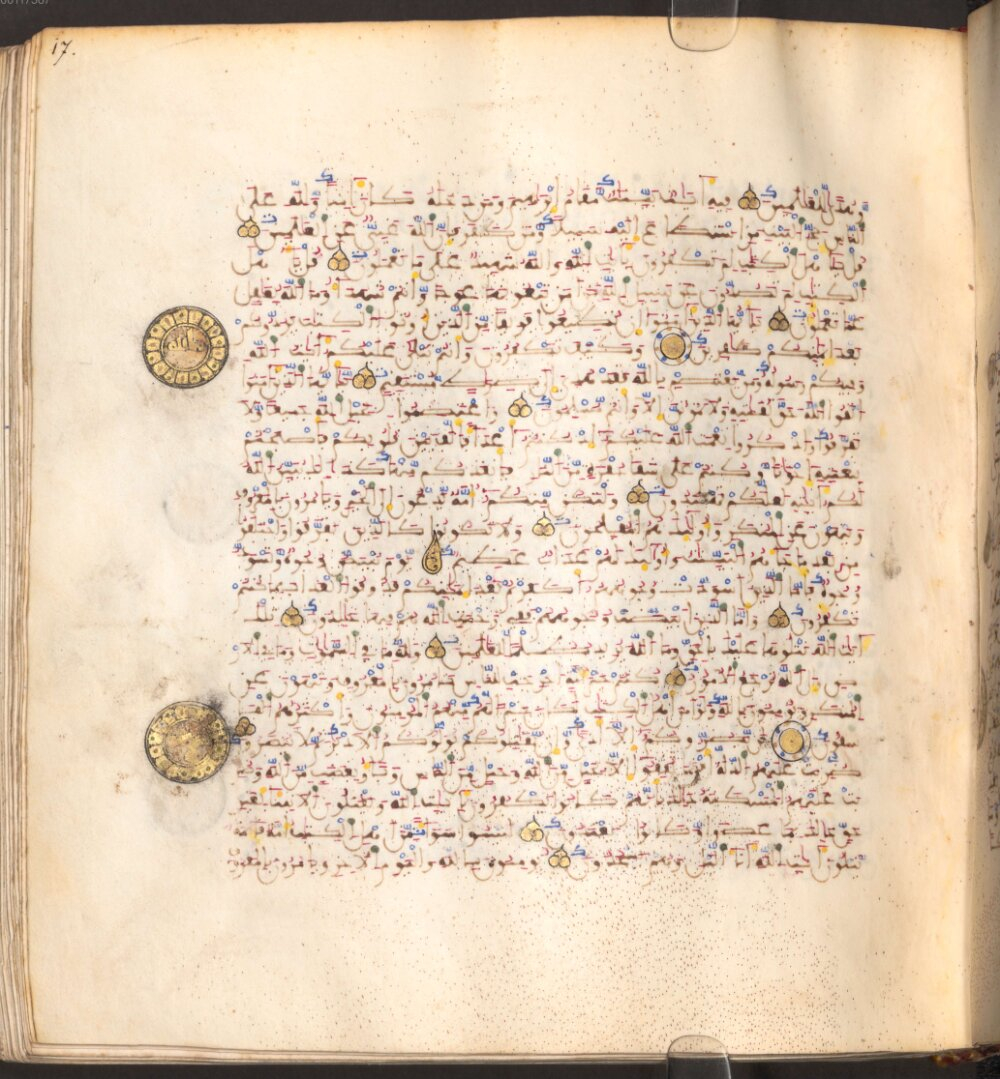 17.
وهدى للعلمين فيه ءايت بينت مقام ابرهيم ومن دخله كان ءامنا ولله على
الناس حج البيت من استطاع اليه سبيلا ومن كفر فان الله غني عن العلمين
قل ياهل الكتب لم تكفرون بايت الله والله شهيد على ما تعملون قل ياهل
الكتب لم تصدون عن سبيل الله من ءامن تبغونها عوجا وانتم شهداء وما الله بغفل
عما تعملون يايها الذين ءامنوا ان تطيعوا فريقا من الذين اوتوا الكتب يردوكم
بعد ايمنكم كفرين وكيف تكفرون وانتم تتلى عليكم ءايت الله
وفيكم رسوله ومن يعتصم بالله فقد هدي الى صرط مستقيم يايها الذين ءامنوا
اتقوا الله حق تقاته ولا تموتن الا وانتم مسلمون واعتصموا بحبل الله جميعا ولا
تفرقوا واذكروا نعمت الله عليكم اذ كنتم اعداء فالف بين قلوبكم فاصبحتم
بنعمته اخوانا وكنتم على شفا حفرة من النار فانقذكم منها كذلك يبين الله
لكم ءايته لعلكم تهتدون ولتكن منكم امة يدعون الى الخير ويامرون بالمعروف
وينهون عن المنكر واولئك هم المفلحون ولا تكونوا كالذين تفرقوا واختلفوا
من بعد ما جاءهم البينت واولئك لهم عذاب عظيم يوم تبيض وجوه وتسود
وجوه فاما الذين اسودت وجوههم اكفرتم بعد ايمنكم فذوقوا العذاب بما كنتم
تكفرون واما الذين ابيضت وجوههم ففي رحمة الله هم فيها خلدون تلك
ءايت الله نتلوها عليك بالحق وما الله يريد ظلما للعلمين ولله ما في السموت وما في الار
ض والى الله ترجع الامور كنتم خير امة اخرجت للناس تامرون بالمعروف وتنهون عن
المنكر وتومنون بالله ولو ءامن اهل الكتب لكان خيرا لهم منهم المومنون واكثرهم الف
سقون لن يضروكم الا اذى وان يقتلوكم يولوكم الادبار ثم لا ينصرون
ضربت عليهم الذلة اين ما ثقفوا الا بحبل من الله وحبل من الناس وباءو بغضب من الله وضر
بت عليهم المسكنة ذلك بانهم كانوا يكفرون بايت الله ويقتلون الانبياء بغير
حق ذلك بما عصوا وكانوا يعتدون ليسوا سواء من اهل الكتب امة قائمة
يتلون ءايت الله ءاناء اليل وهم يسجدون يومنون بالله واليوم الاخر ويامرون بالمعروف